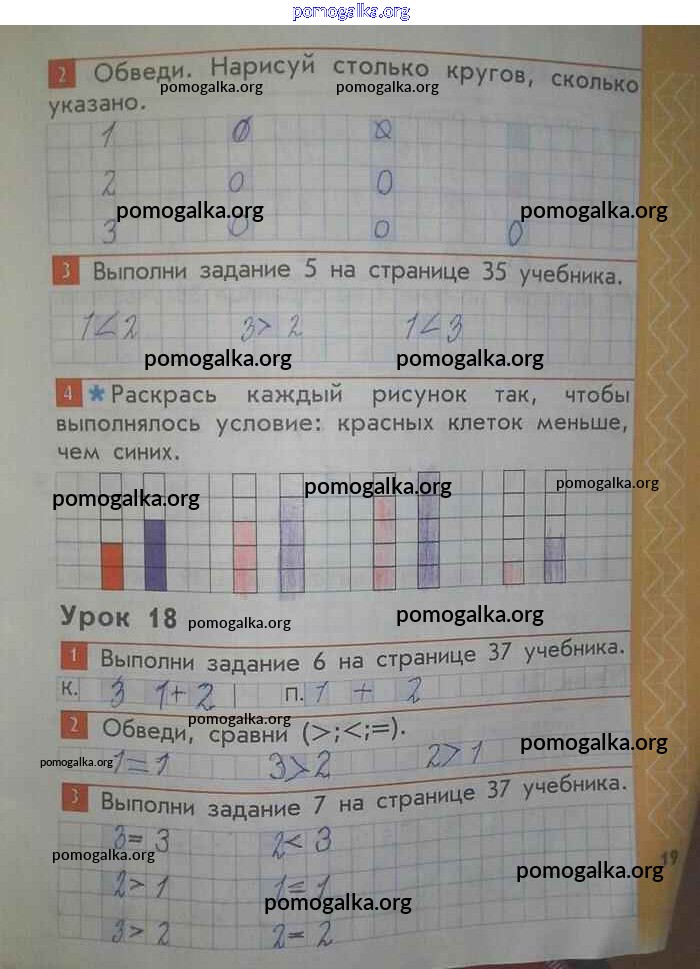 pomogalka.org
2 Обведи. Нарисуй столько кругов, сколько
pomogalka.org pomogalka.org
указано.
1 0 0
2 0 0
pomogalka.org pomogalka.org
3 0 0 0
3 Выполни задание 5 на странице 35 учебника.
1<2 3>2 1<3
pomogalka.org pomogalka.org
4 * Раскрась каждый рисунок так, чтобы
выполнялось условие: красных клеток меньше,
чем синих.
pomogalka.org pomogalka.org pomogalka.org
Урок 18 pomogalka.org pomogalka.org
1 Выполни задание 6 на странице 37 учебника.
К. 3 1+2 П. 1 + 2
pomogalka.org
2 Обведи, сравни (>;<;=).
pomogalka.org pomogalka.org
1=1 3>2 2>1
3 Выполни задание 7 на странице 37 учебника.
3=3 2<3
pomogalka.org 19
2>1 1=1 pomogalka.org
pomogalka.org
3>2 2=2